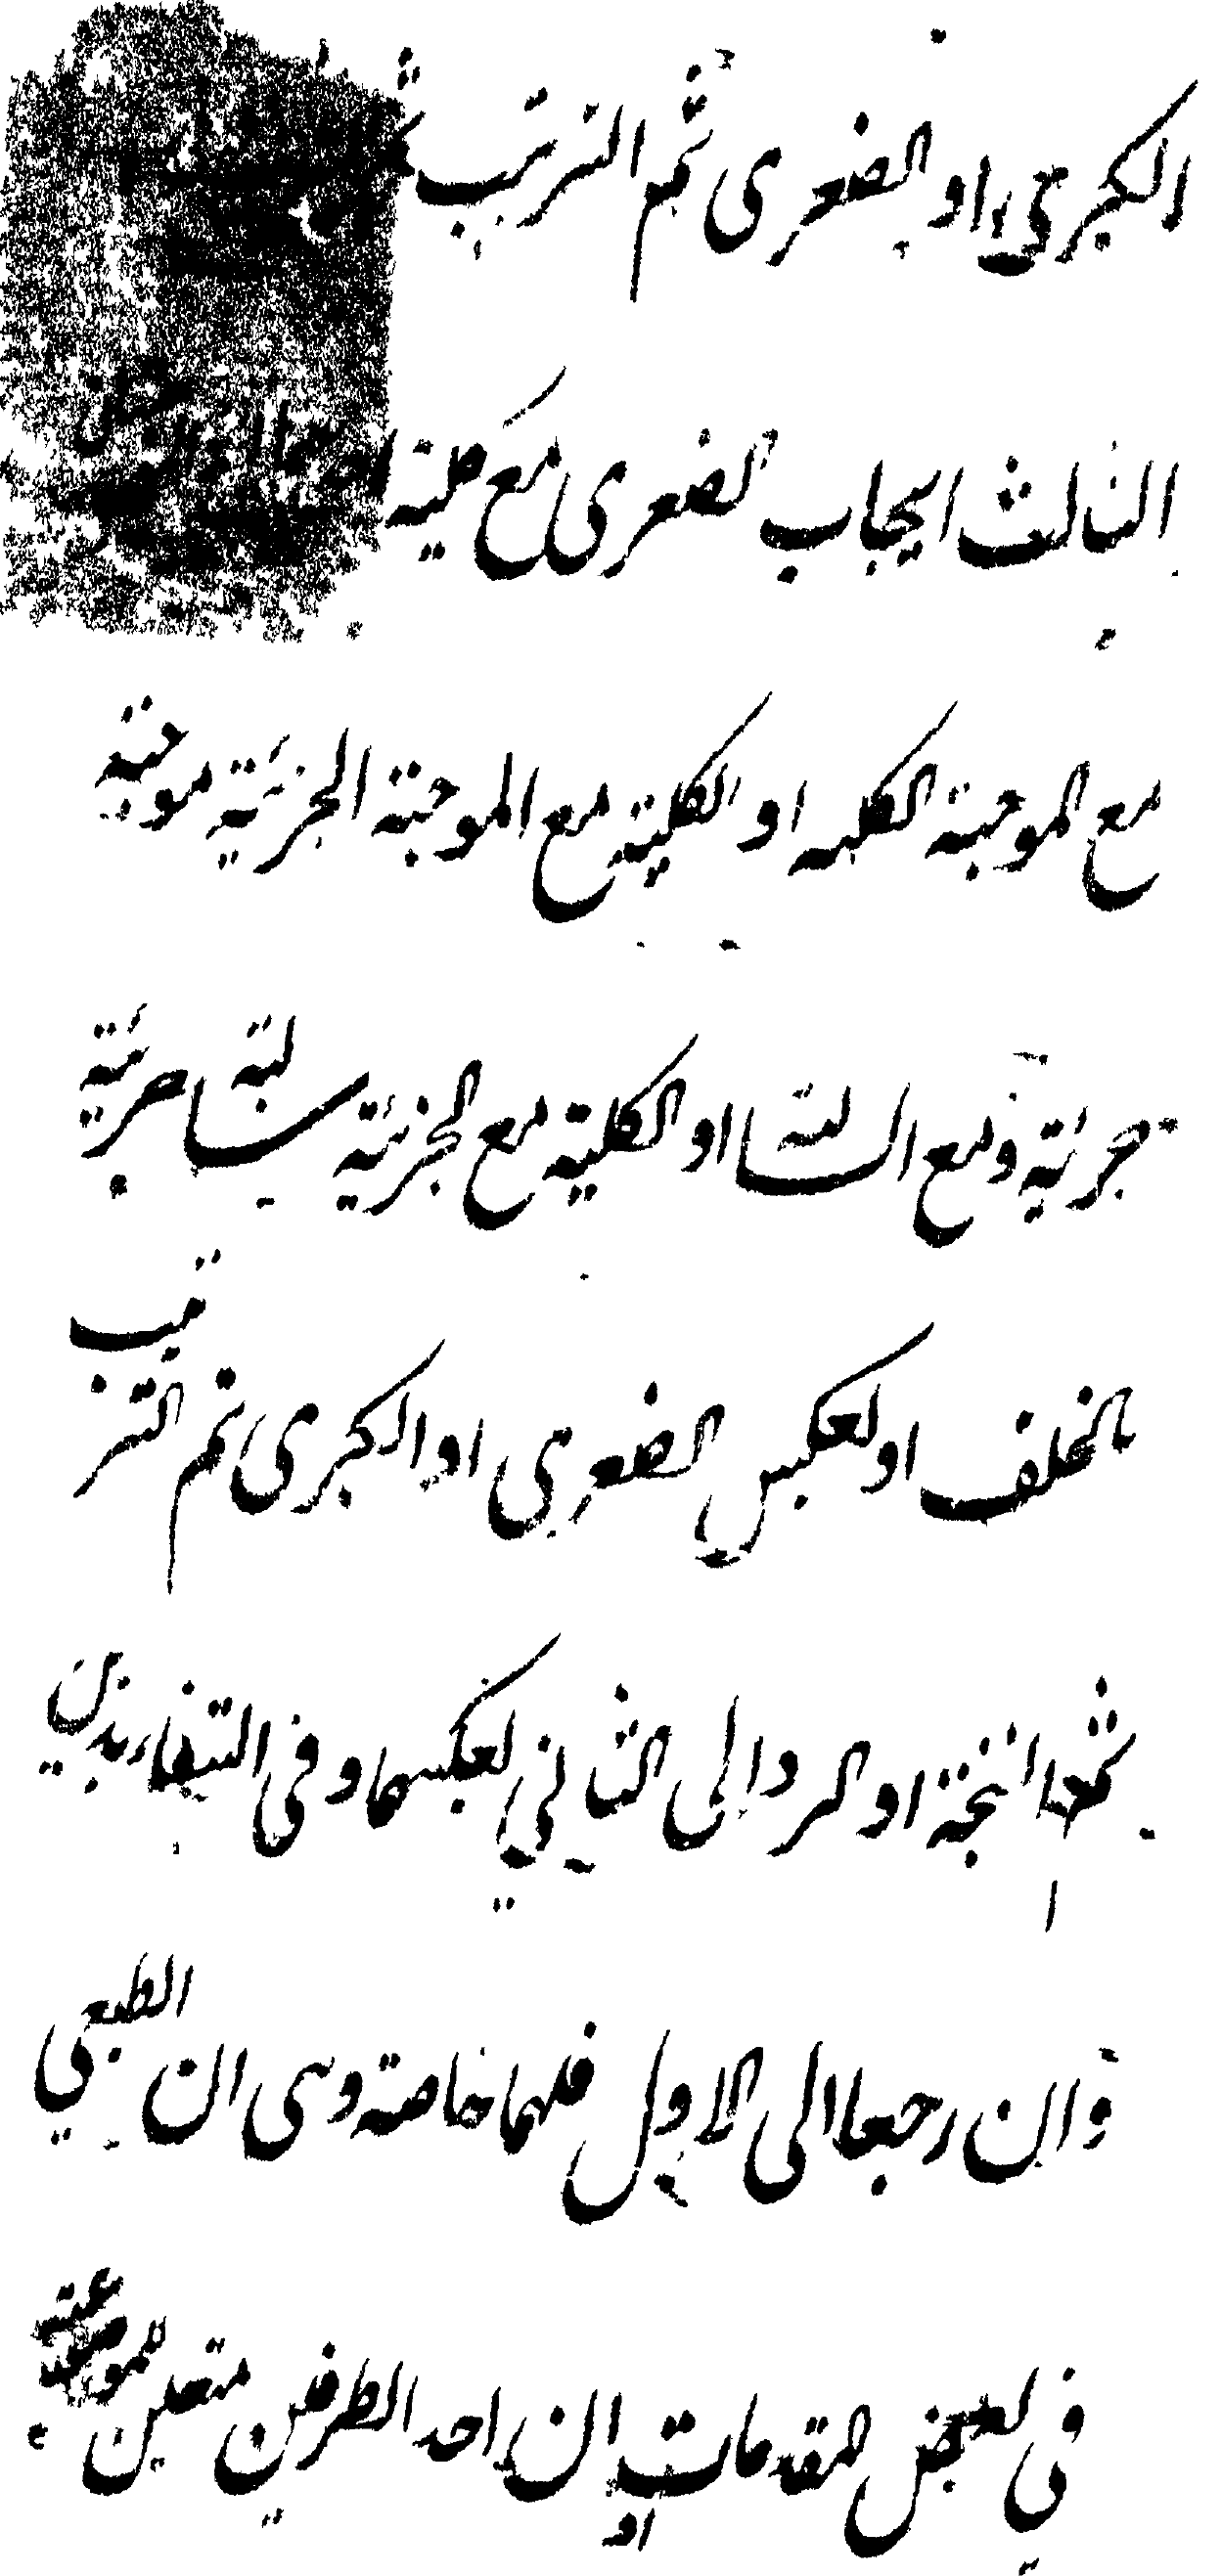 الكبرى او الصغرى ثم الترتيب
الثالث ايجاب الصغرى مع كلية
مع الموجبة الكليه او الكلية مع الموجبة الجزئية موجبة
جزئية ومع السالبة او الكلية مع الجزئية سالبة جزئية
بالخلف او لعكس الصغرى او الكبرى ثم الترتيب
ثم النتيجة او الرد الى الثاني لعكسها وفى
وان رجعا الى الاول فلهما خاصة وهى ان الطبعي
في بعض المقدمات او ان احد الطرفين متعين